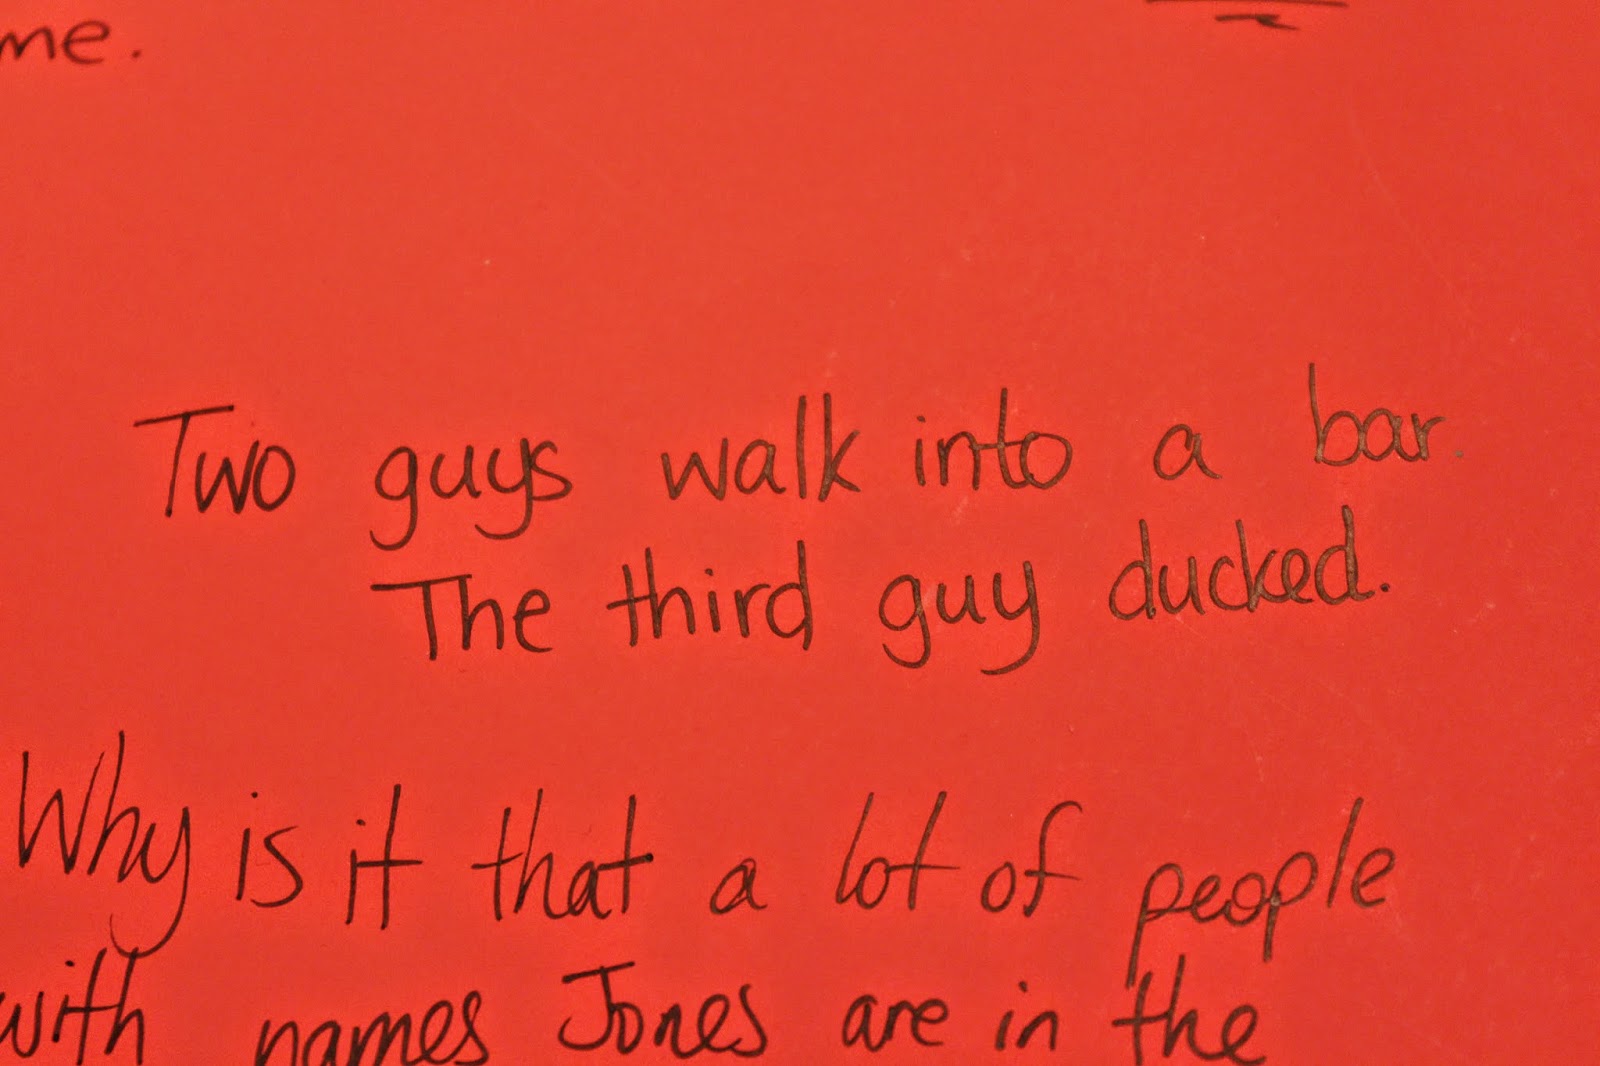 me.
Two guys walk into a bar.
The third guy ducked.
Why is it that a lot of people
with names Jones are in the